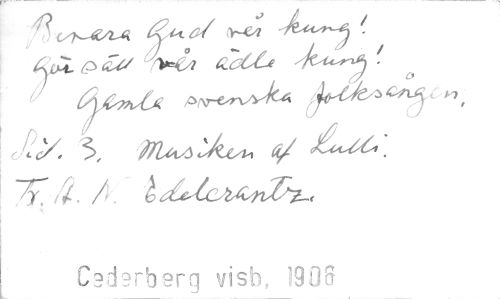 Bevara Gud vår kung!
Gör säll vår ädle kung!
Gamla svenska folksången,
Sid. 3. Musiken af Lulli.
Fr. A. N. Edelcrantz.
Cederberg visb, 1906